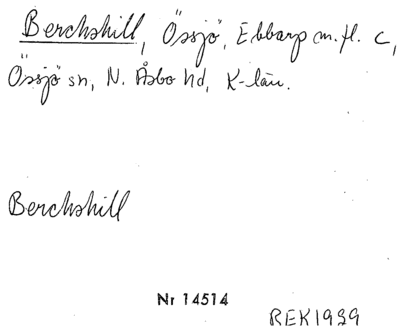 Berchshill, Össjö, Ebbarp m.fl. C,
Össjö sn, N. Åsbo hd, K-län.
Berchshill
Nr 14514
REK1939